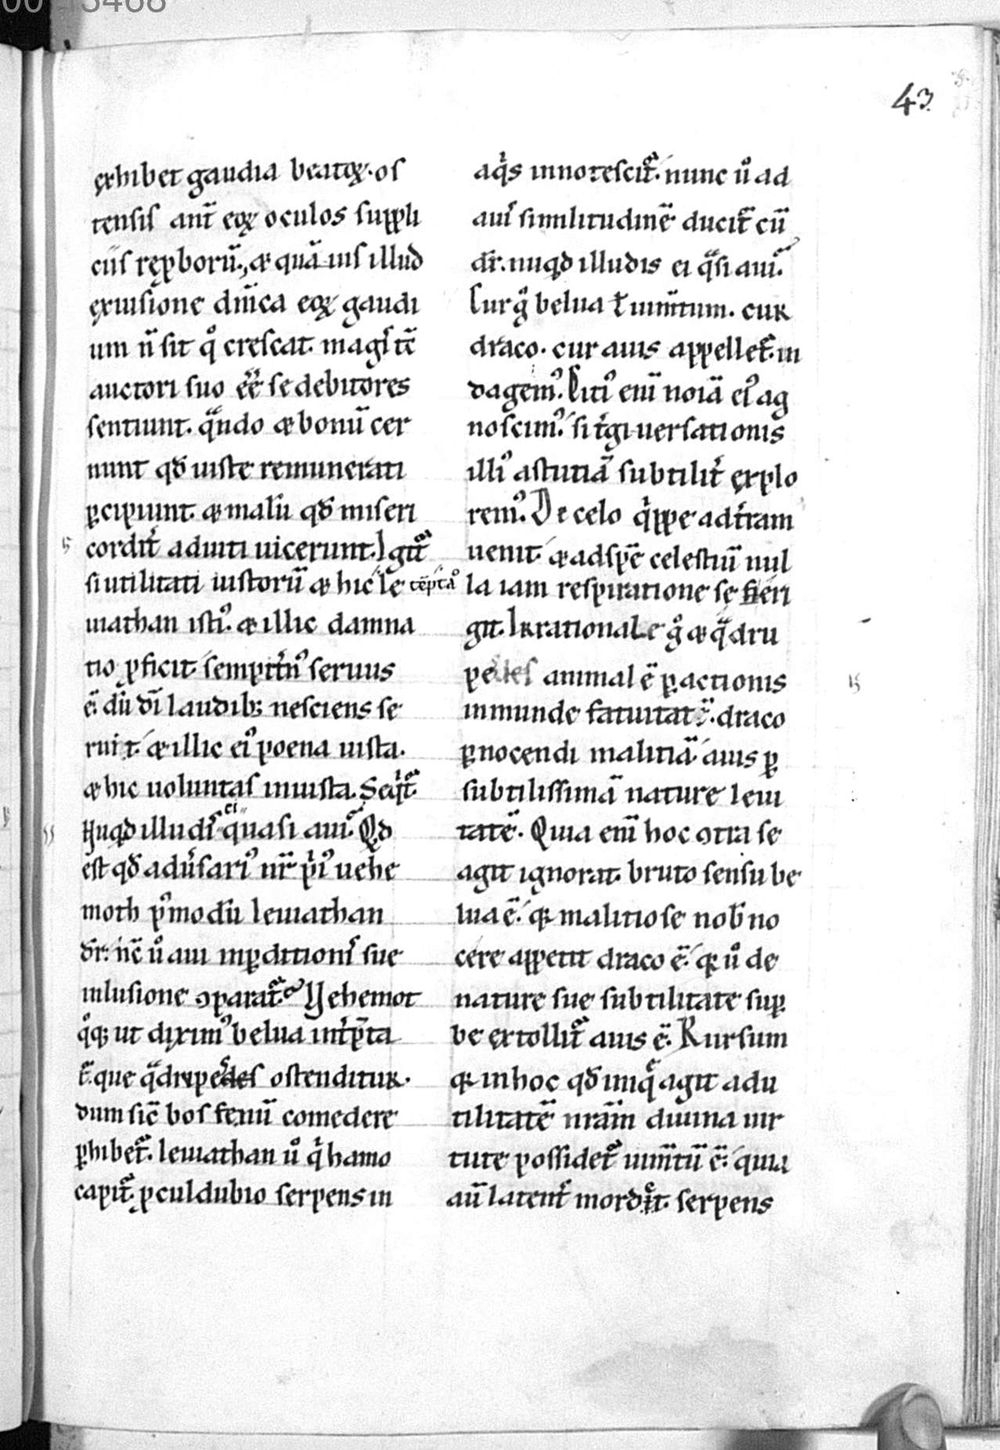 43
exhibet gaudia beatoꝝ. os
tensis ant̄ eoꝝ oculos suppli
ciis reproborū. & quā uis illud
ex uisione dn̄ica eoꝝ gaudi
um n̄ sit qͦ crescat. magis tc̄
auctori suo eē̄ se debitores
sentiunt. qᷓndo & bonū cer
nunt qđ iuste remunerati
ꝑcipiunt. & malū qđ miseri
cordit̄ adiuti uicerunt. Igit᷑
si utilitati iustorū & hic le tēptatᵒ
uiathan istiꝰ. & illic damna
tio ꝓficit. sempit̄nꝰ seruus
ē. dū dī laudibꝫ nesciens se
ruit. & illic eiꝰ poena iusta.
& hic uoluntas iniusta. Seqͥt᷑
Nūqđ illudis ei qᷓuasi aui. Qđ
est qđ adūsariꝰ nr̄ pͥꝰ uehe
moth pꝰmodū leuiathan
dr̄. nc̄ uͦ aui in ꝑditionis sue
inlusione ↄparat᷑. Vehemot
qͦqꝫ ut diximꝰ belua int̄ꝑta
t᷑. que qᷓdrupedes ostenditur.
dum sic̄ bos fenū comedere
ꝑhibet᷑. leuiathan uͦ qͥ hamo
capit᷑. ꝓcul dubio serpens in
aqͥs innotescit᷑. nunc uͦ ad
auis similitudinē ducit᷑ cū
dr̄. nūqđ illudis ei qᷓsi aui.
Cur gͦ belua t̄ iumītum. cur
draco. cur auis appellet᷑. in
dagemꝰ. Citiꝰ enī noīa eiꝰ ag
noscimꝰ. si t̄giuersationis
illiꝰ astutiā subtilit̄ explo
remꝰ. De celo qͥppe ad t̄ram
uenit. & ad spē celestiū nul
la iam respiratione se
git. Irrationale gͦ & qᷓdru
pedes animal ē ꝑ actionis
inmunde fatuitatē. draco
ꝑ nocendi malitiā. auis ꝑ
subtilissimā nature leui
tatē. Quia enī hoc ↄtra se
agit ignorat. bruto sensu be
lua ē. qꝛ malitiose nob̄ no
cere appetit draco ē. qꝛ uͦ de
nature sue subtilitate suꝑ
be extollit᷑ auis ē. Rursum
qꝛ in hoc qđ iniqͣ agit ad u
tilitatē nr̄am diuina uir
tute possidet᷑ iumītū ē. quia
aū latent̄ mordet. serpens